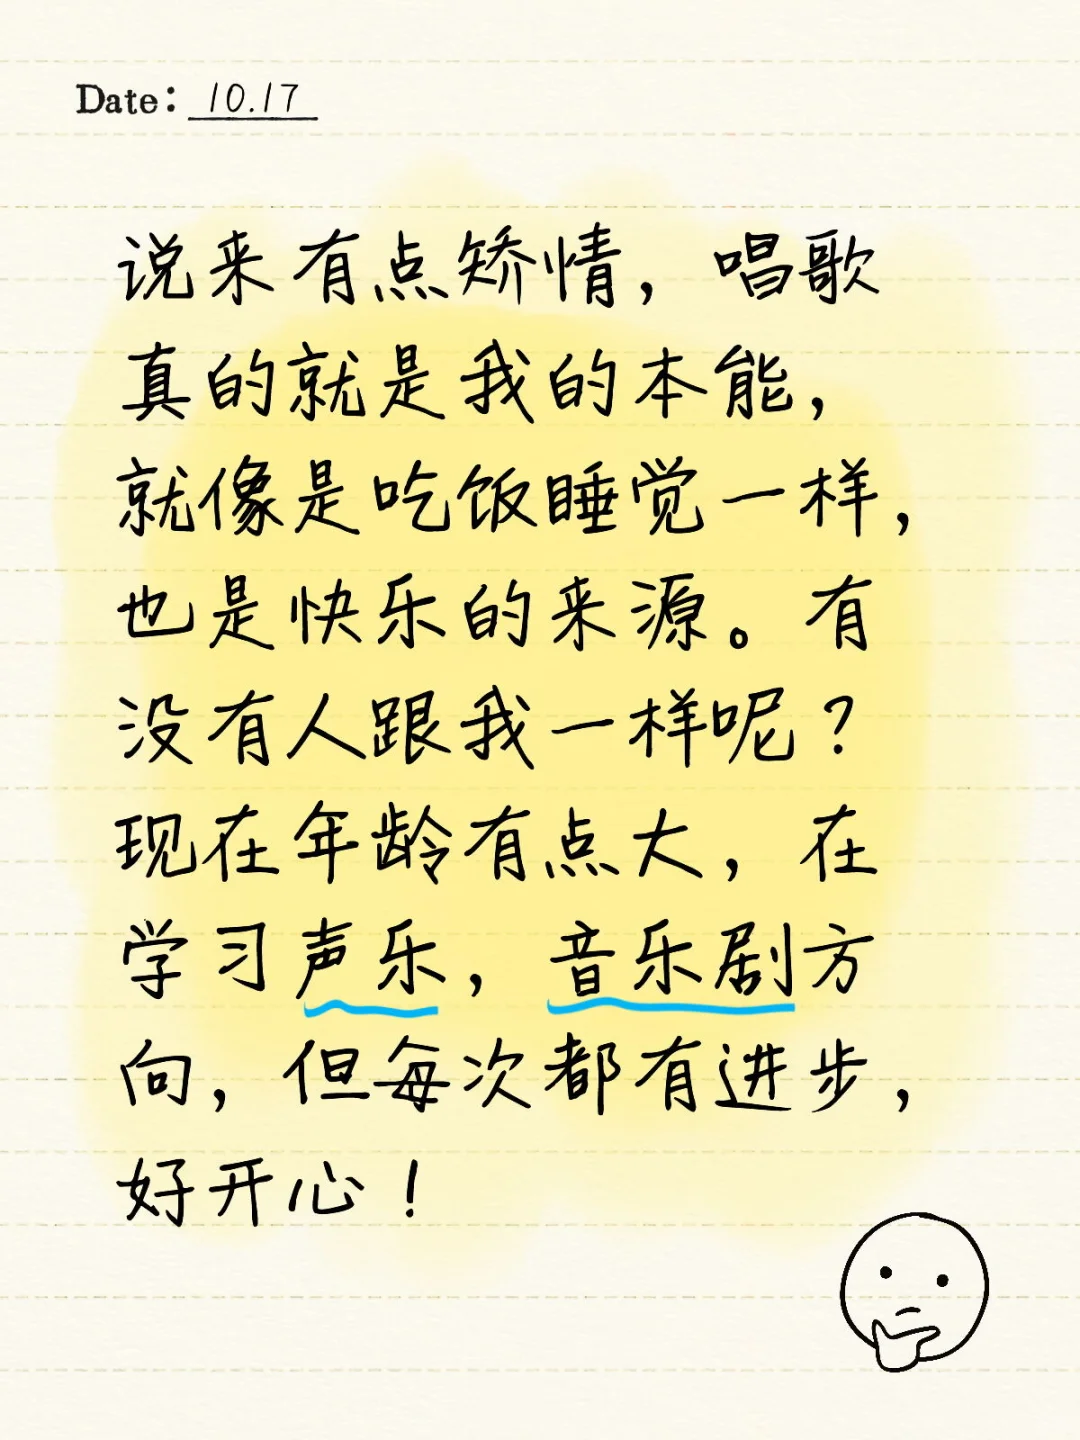 Date: 10.17
说来有点矫情，唱歌
真的就是我的本能，
就像是吃饭睡觉一样，
也是快乐的来源。有
没有人跟我一样呢？
现在年龄有点大，在
学习声乐，音乐剧方
向，但每次都有进步，
好开心！